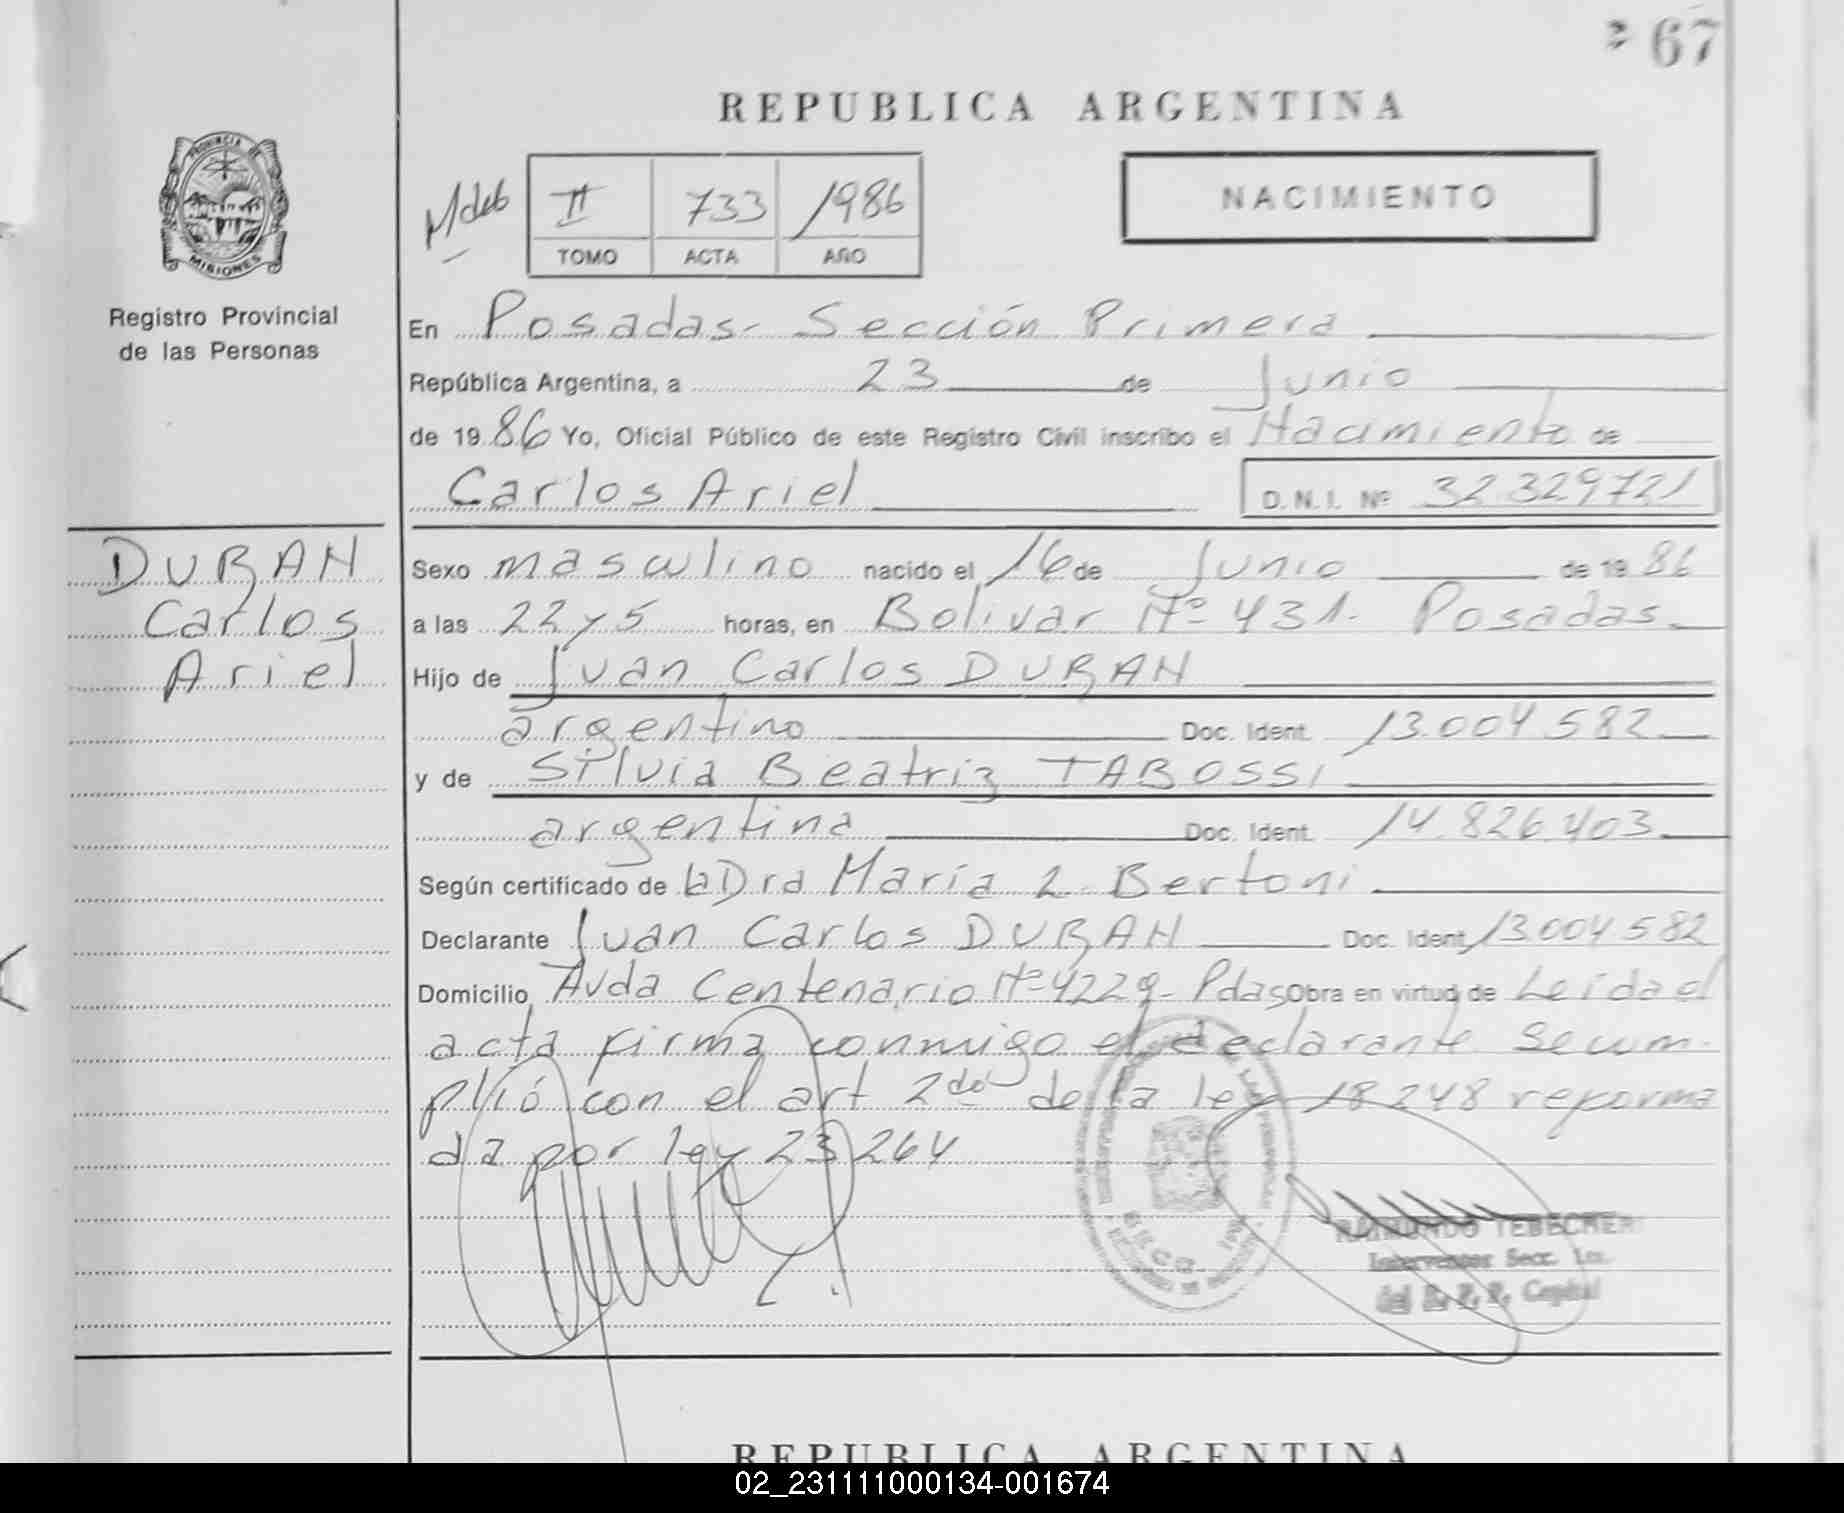 67
REPUBLICA ARGENTINA
PROVINCIA DE
MISIONES
Registro Provincial
de las Personas
II 733 1986
TOMO ACTA AÑO
NACIMIENTO
En Posadas- Sección Primera
República Argentina, a 23 de Junio
de 19 86 Yo, Oficial Público de este Registro Civil inscribo el Nacimiento de
Carlos Ariel D.N.I. Nº 32.329721
DURAN
Carlos
Ariel
Sexo masculino nacido el 16 de Junio de 19 86
a las 22 y 5 horas, en Bolivar Nº 431. Posadas
Hijo de Juan Carlos DURAN
argentino Doc. Ident. 13.004.582
y de Silvia Beatriz TABOSSI
argentina Doc. Ident. 14.826.403
Según certificado de la Dra María L. Bertoni
Declarante Juan Carlos DURAN Doc. Ident. 13.004.582
Domicilio Avda Centenario Nº 4229- Pdas Obra en virtud de Leida el
acta firma conmigo el declarante se cum-
plió con el art 2do de la ley 18248 reforma
da por ley 23264
RAIMUNDO
Interventor Secc. 1ra.
del R. P. P. Capital
REPUBLICA ARGENTINA
02_231111000134-001674